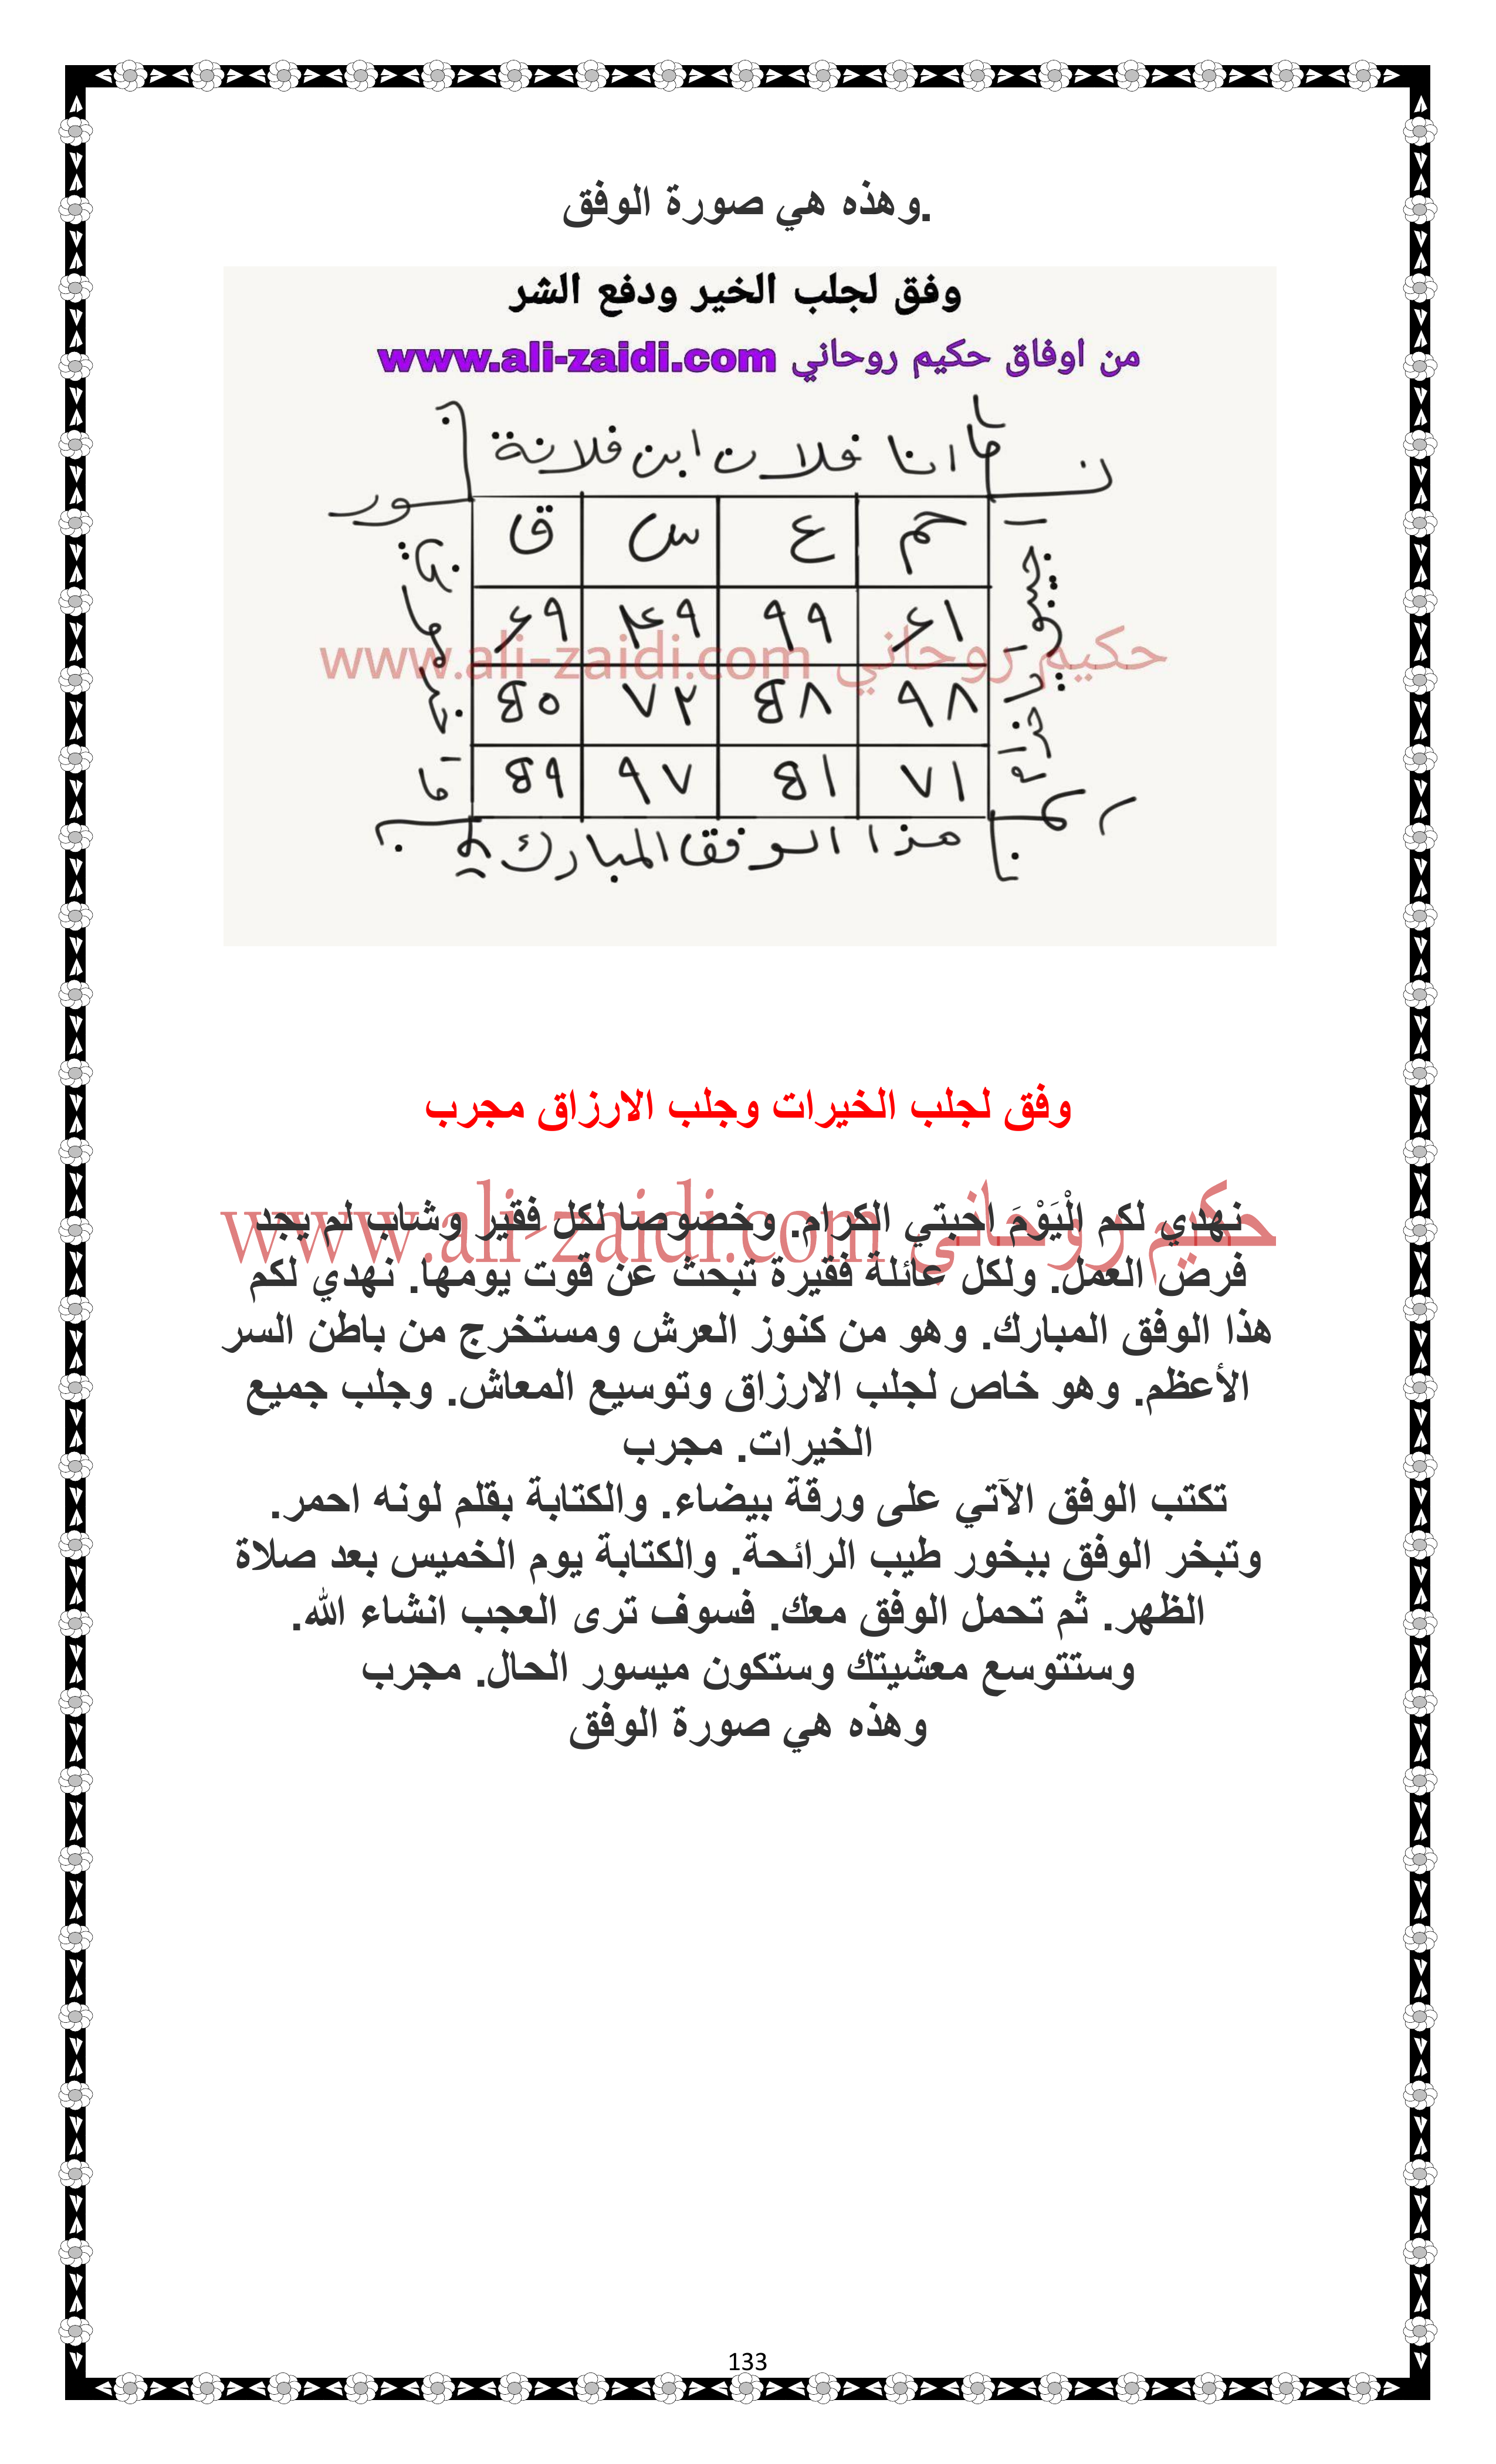 وهذه هي صورة الوفق.
وفق لجلب الخير ودفع الشر
من اوفاق حكيم روحاني www.ali-zaidi.com
انا فلان ابن فلانة
حم ع س ق
۶۱ ۹۹ ۴۹ ۶۹
۹۸
۷۲
۷۱
۹۷
حكيم روحاني www.ali-zaidi.com
هذا الوفق المبارك
وفق لجلب الخيرات وجلب الارزاق مجرب
حكيم روحاني www.ali-zaidi.com
نهدي لكم الْيَوْمَ احبتي الكرام. وخصوصا لكل فقير وشاب لم يجد
فرص العمل. ولكل عائلة فقيرة تبحث عن قوت يومها. نهدي لكم
هذا الوفق المبارك. وهو من كنوز العرش ومستخرج من باطن السر
الأعظم. وهو خاص لجلب الارزاق وتوسيع المعاش. وجلب جميع
الخيرات. مجرب
تكتب الوفق الآتي على ورقة بيضاء. والكتابة بقلم لونه احمر.
وتبخر الوفق ببخور طيب الرائحة. والكتابة يوم الخميس بعد صلاة
الظهر. ثم تحمل الوفق معك. فسوف ترى العجب انشاء الله.
وستتوسع معشيتك وستكون ميسور الحال. مجرب
وهذه هي صورة الوفق
133